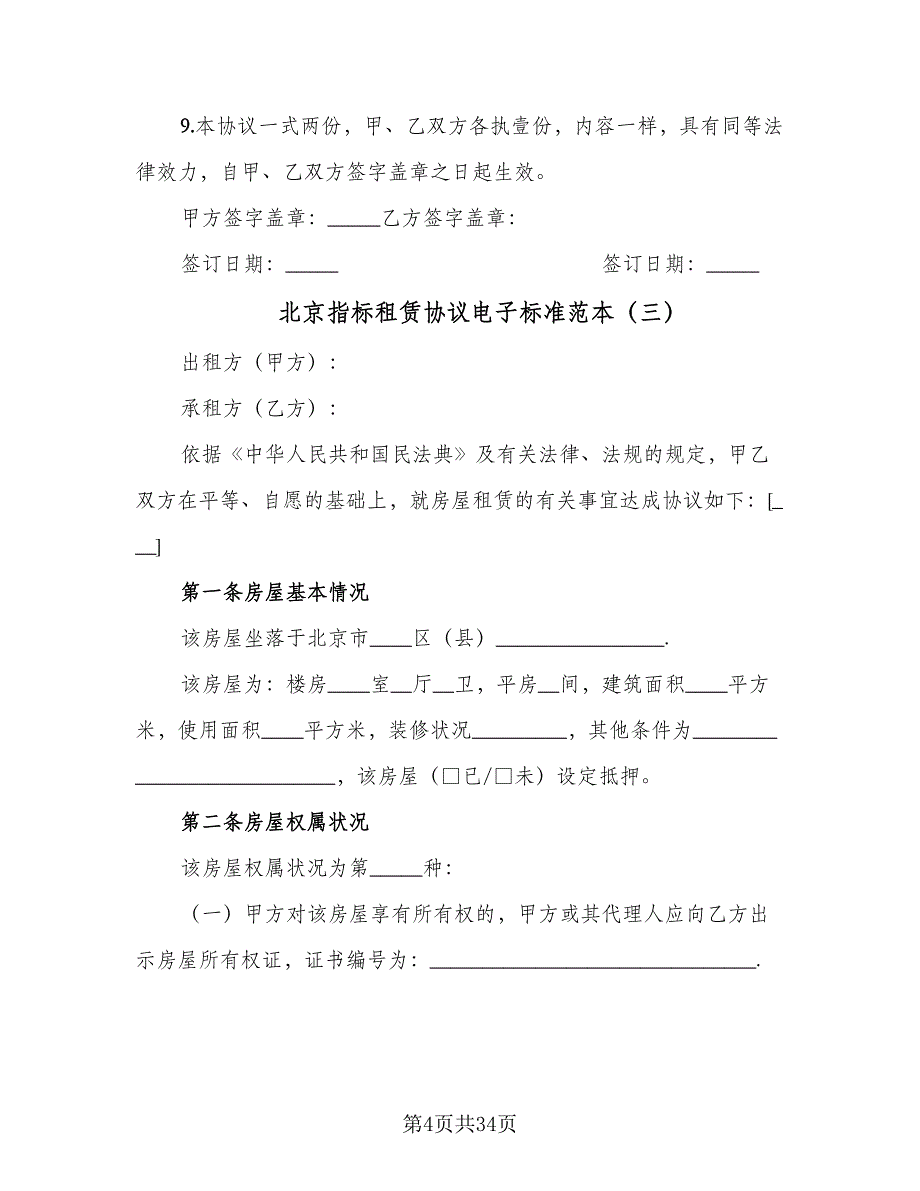 9.本协议一式两份，甲、乙双方各执壹份，内容一样，具有同等法
律效力，自甲、乙双方签字盖章之日起生效。
甲方签字盖章：_____乙方签字盖章：
签订日期：_____ 签订日期：_____
北京指标租赁协议电子标准范本（三）
出租方（甲方）：
承租方（乙方）：
依据《中华人民共和国民法典》及有关法律、法规的规定，甲乙
双方在平等、自愿的基础上，就房屋租赁的有关事宜达成协议如下：[_
__]
第一条房屋基本情况
该房屋坐落于北京市____区（县）________________.
该房屋为：楼房____室__厅__卫，平房__间，建筑面积____平方
米，使用面积____平方米，装修状况_________，其他条件为________
___________________，该房屋（□已/□未）设定抵押。
第二条房屋权属状况
该房屋权属状况为第_____种：
（一）甲方对该房屋享有所有权的，甲方或其代理人应向乙方出
示房屋所有权证，证书编号为：_______________________________.
第4页共34页